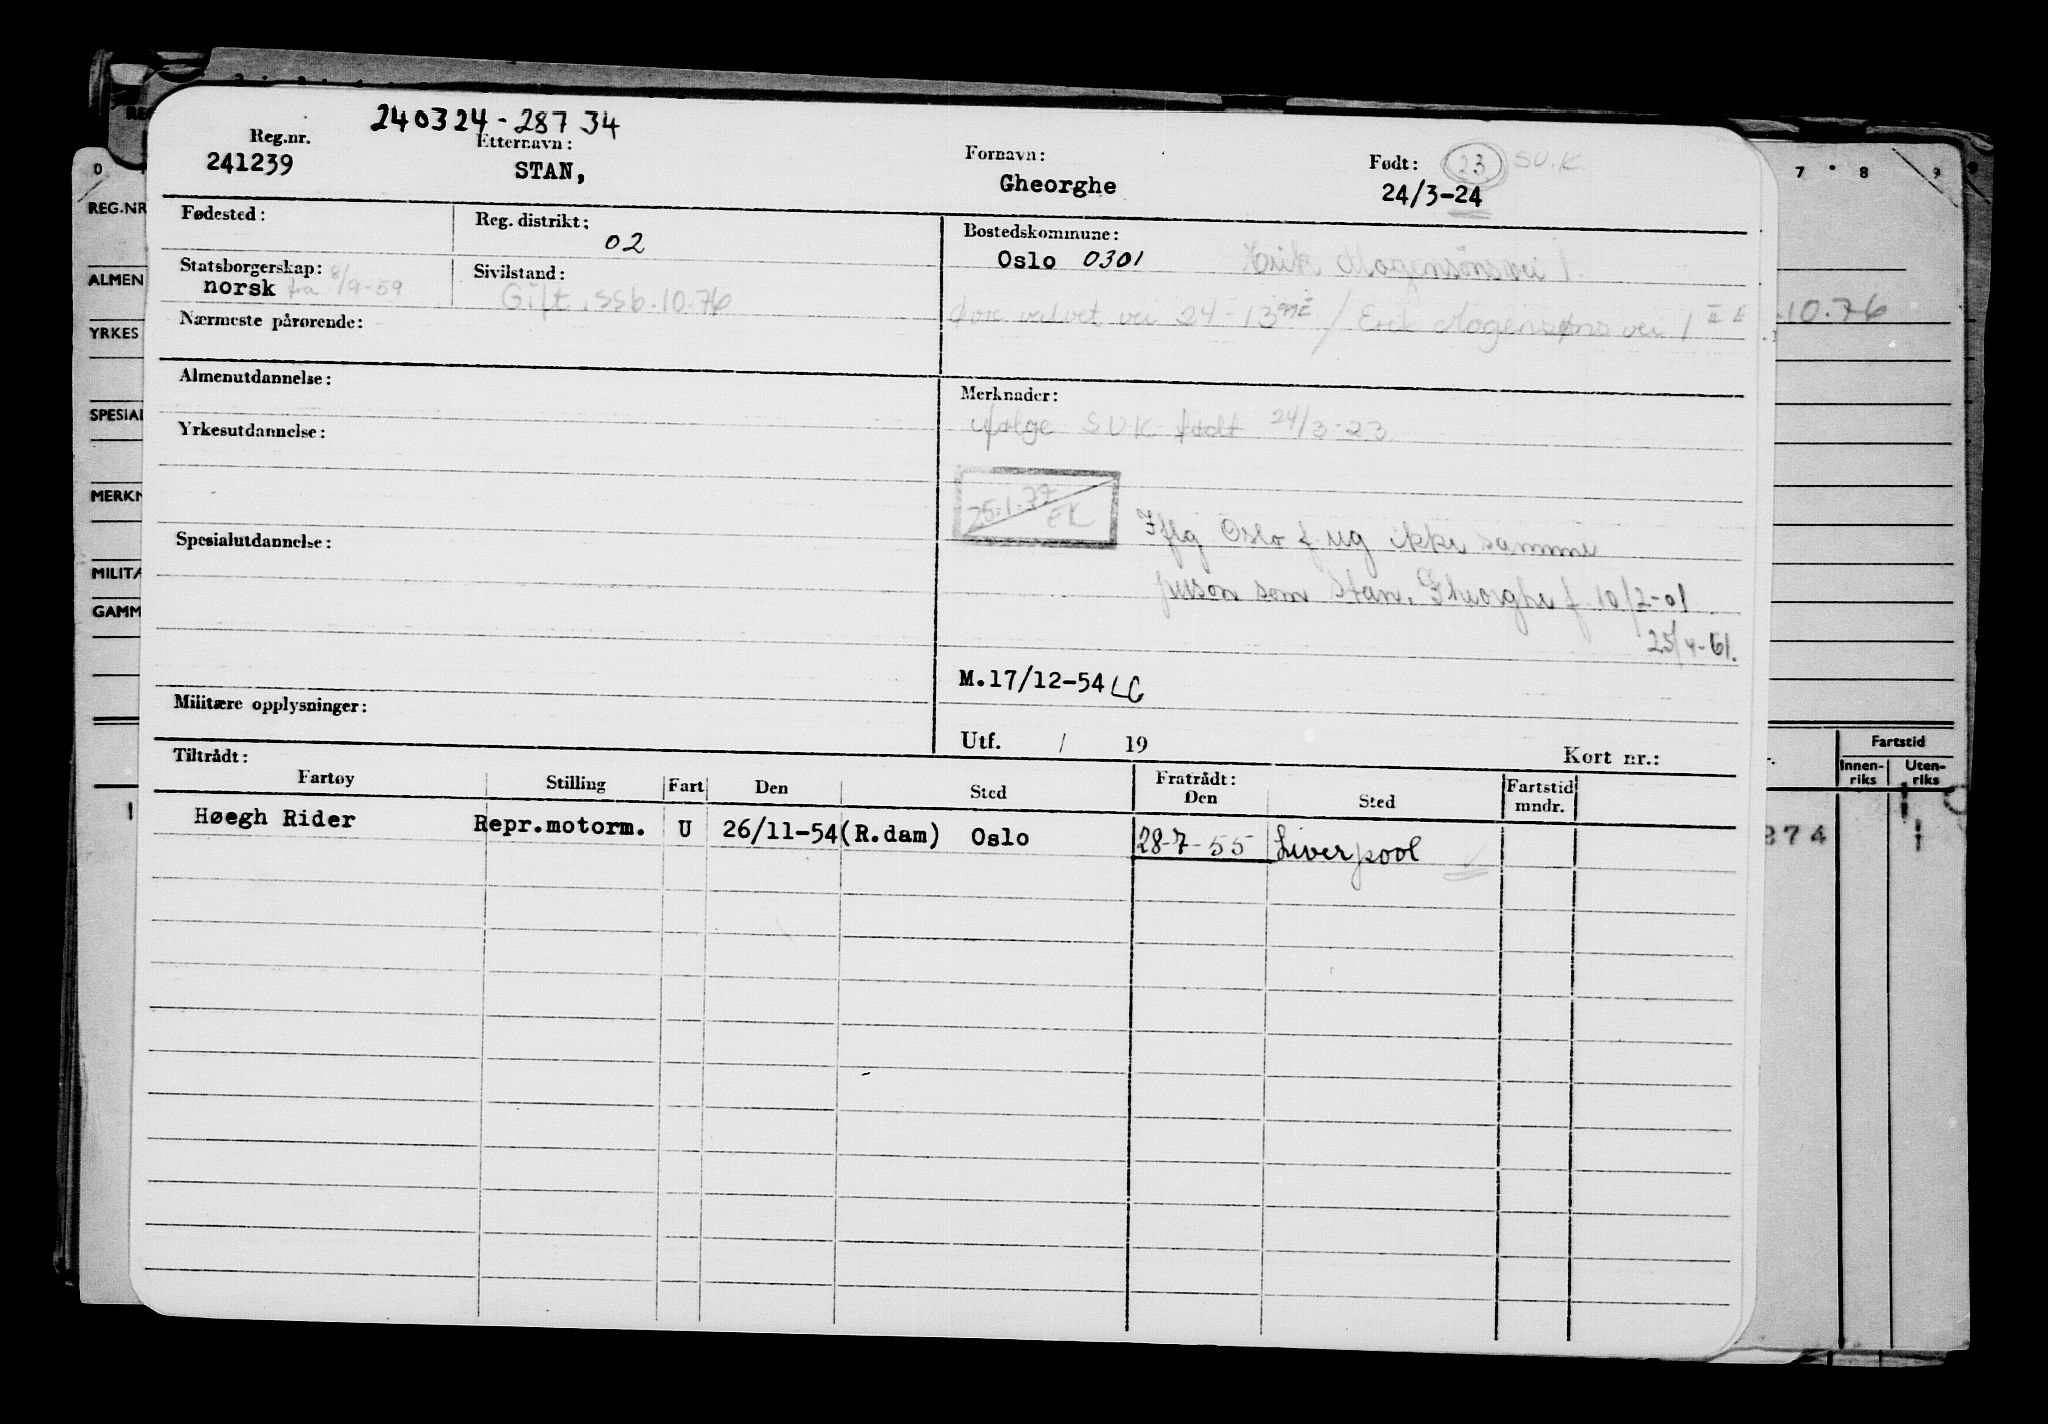 240324-28734
Reg.nr. Etternavn: Fornavn: Født: 23 SUK
241239 STAN, Gheorghe 24/3-24
Fødested: Reg. distrikt: 02 Bostedskommune:
Oslo 0301 Erik Mogensønsvei 1.
Statsborgerskap: Sivilstand:
norsk fra 8/9-59 Gift, SSb.10.76
24-13 / Erik Mogensøns vei 1
Nærmeste pårørende:
Almenutdannelse: Merknader:
ifølge SUK født 24/3-23
Yrkesutdannelse:
25.1.77
EK
Iflg Oslo f ug ikke samme
person som Stan, Gheorghe f. 10/2-01
25/4-61.
Spesialutdannelse:
M.17/12-54 LG
Militære opplysninger:
Utf. / 19 Kort nr.:
Tiltrådt: Fratrådt:
Fartøy Stilling Fart Den Sted Den Sted Fartstid
mndr.
Høegh Rider Repr.motorm. U 26/11-54 (R.dam) Oslo 28-7-55 Liverpool
0
REG.NR
ALMEN
YRKES
SPESIAL
MERKN
MILITÆ
GAMM
7 8 9
10.76
Fartstid
Innen-
riks
Uten-
riks
1
274